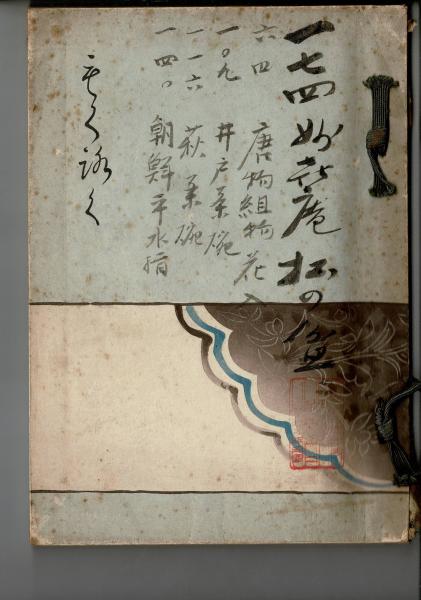 一七四 妙喜庵 松の盆
六四 唐物組物花入
一〇九 井戸茶碗
一一六 萩茶碗
一四〇 朝鮮平水指
もくろく